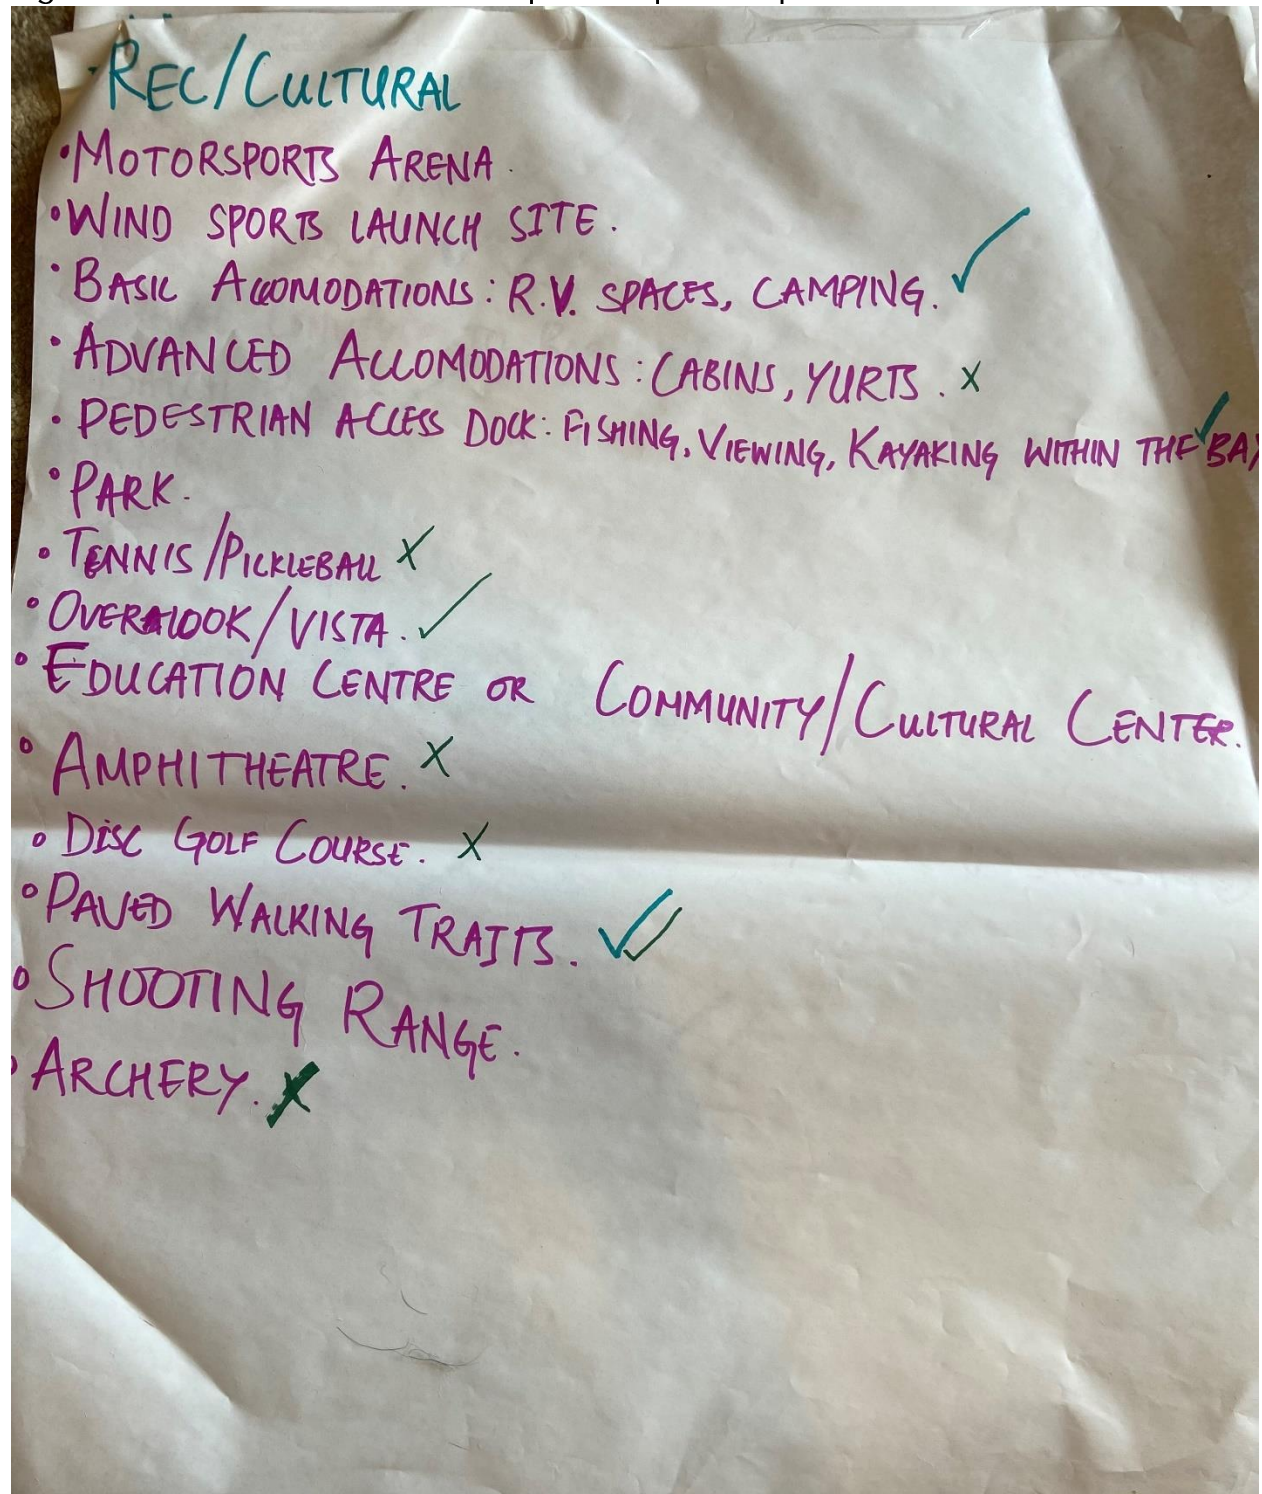 · REC/CULTURAL
· MOTORSPORTS ARENA.
· WIND SPORTS LAUNCH SITE.
· BASIC ACCOMODATIONS: R.V. SPACES, CAMPING. ✓
· ADVANCED ACCOMODATIONS: CABINS, YURTS. X
· PEDESTRIAN ACCESS DOCK: FISHING, VIEWING, KAYAKING WITHIN THE BAY ✓
· PARK.
· TENNIS/PICKLEBALL X
· OVERLOOK/VISTA. ✓
· EDUCATION CENTRE OR COMMUNITY/CULTURAL CENTER.
· AMPHITHEATRE. X
· DISC GOLF COURSE. X
· PAVED WALKING TRAILS. ✓✓
· SHOOTING RANGE.
· ARCHERY. X